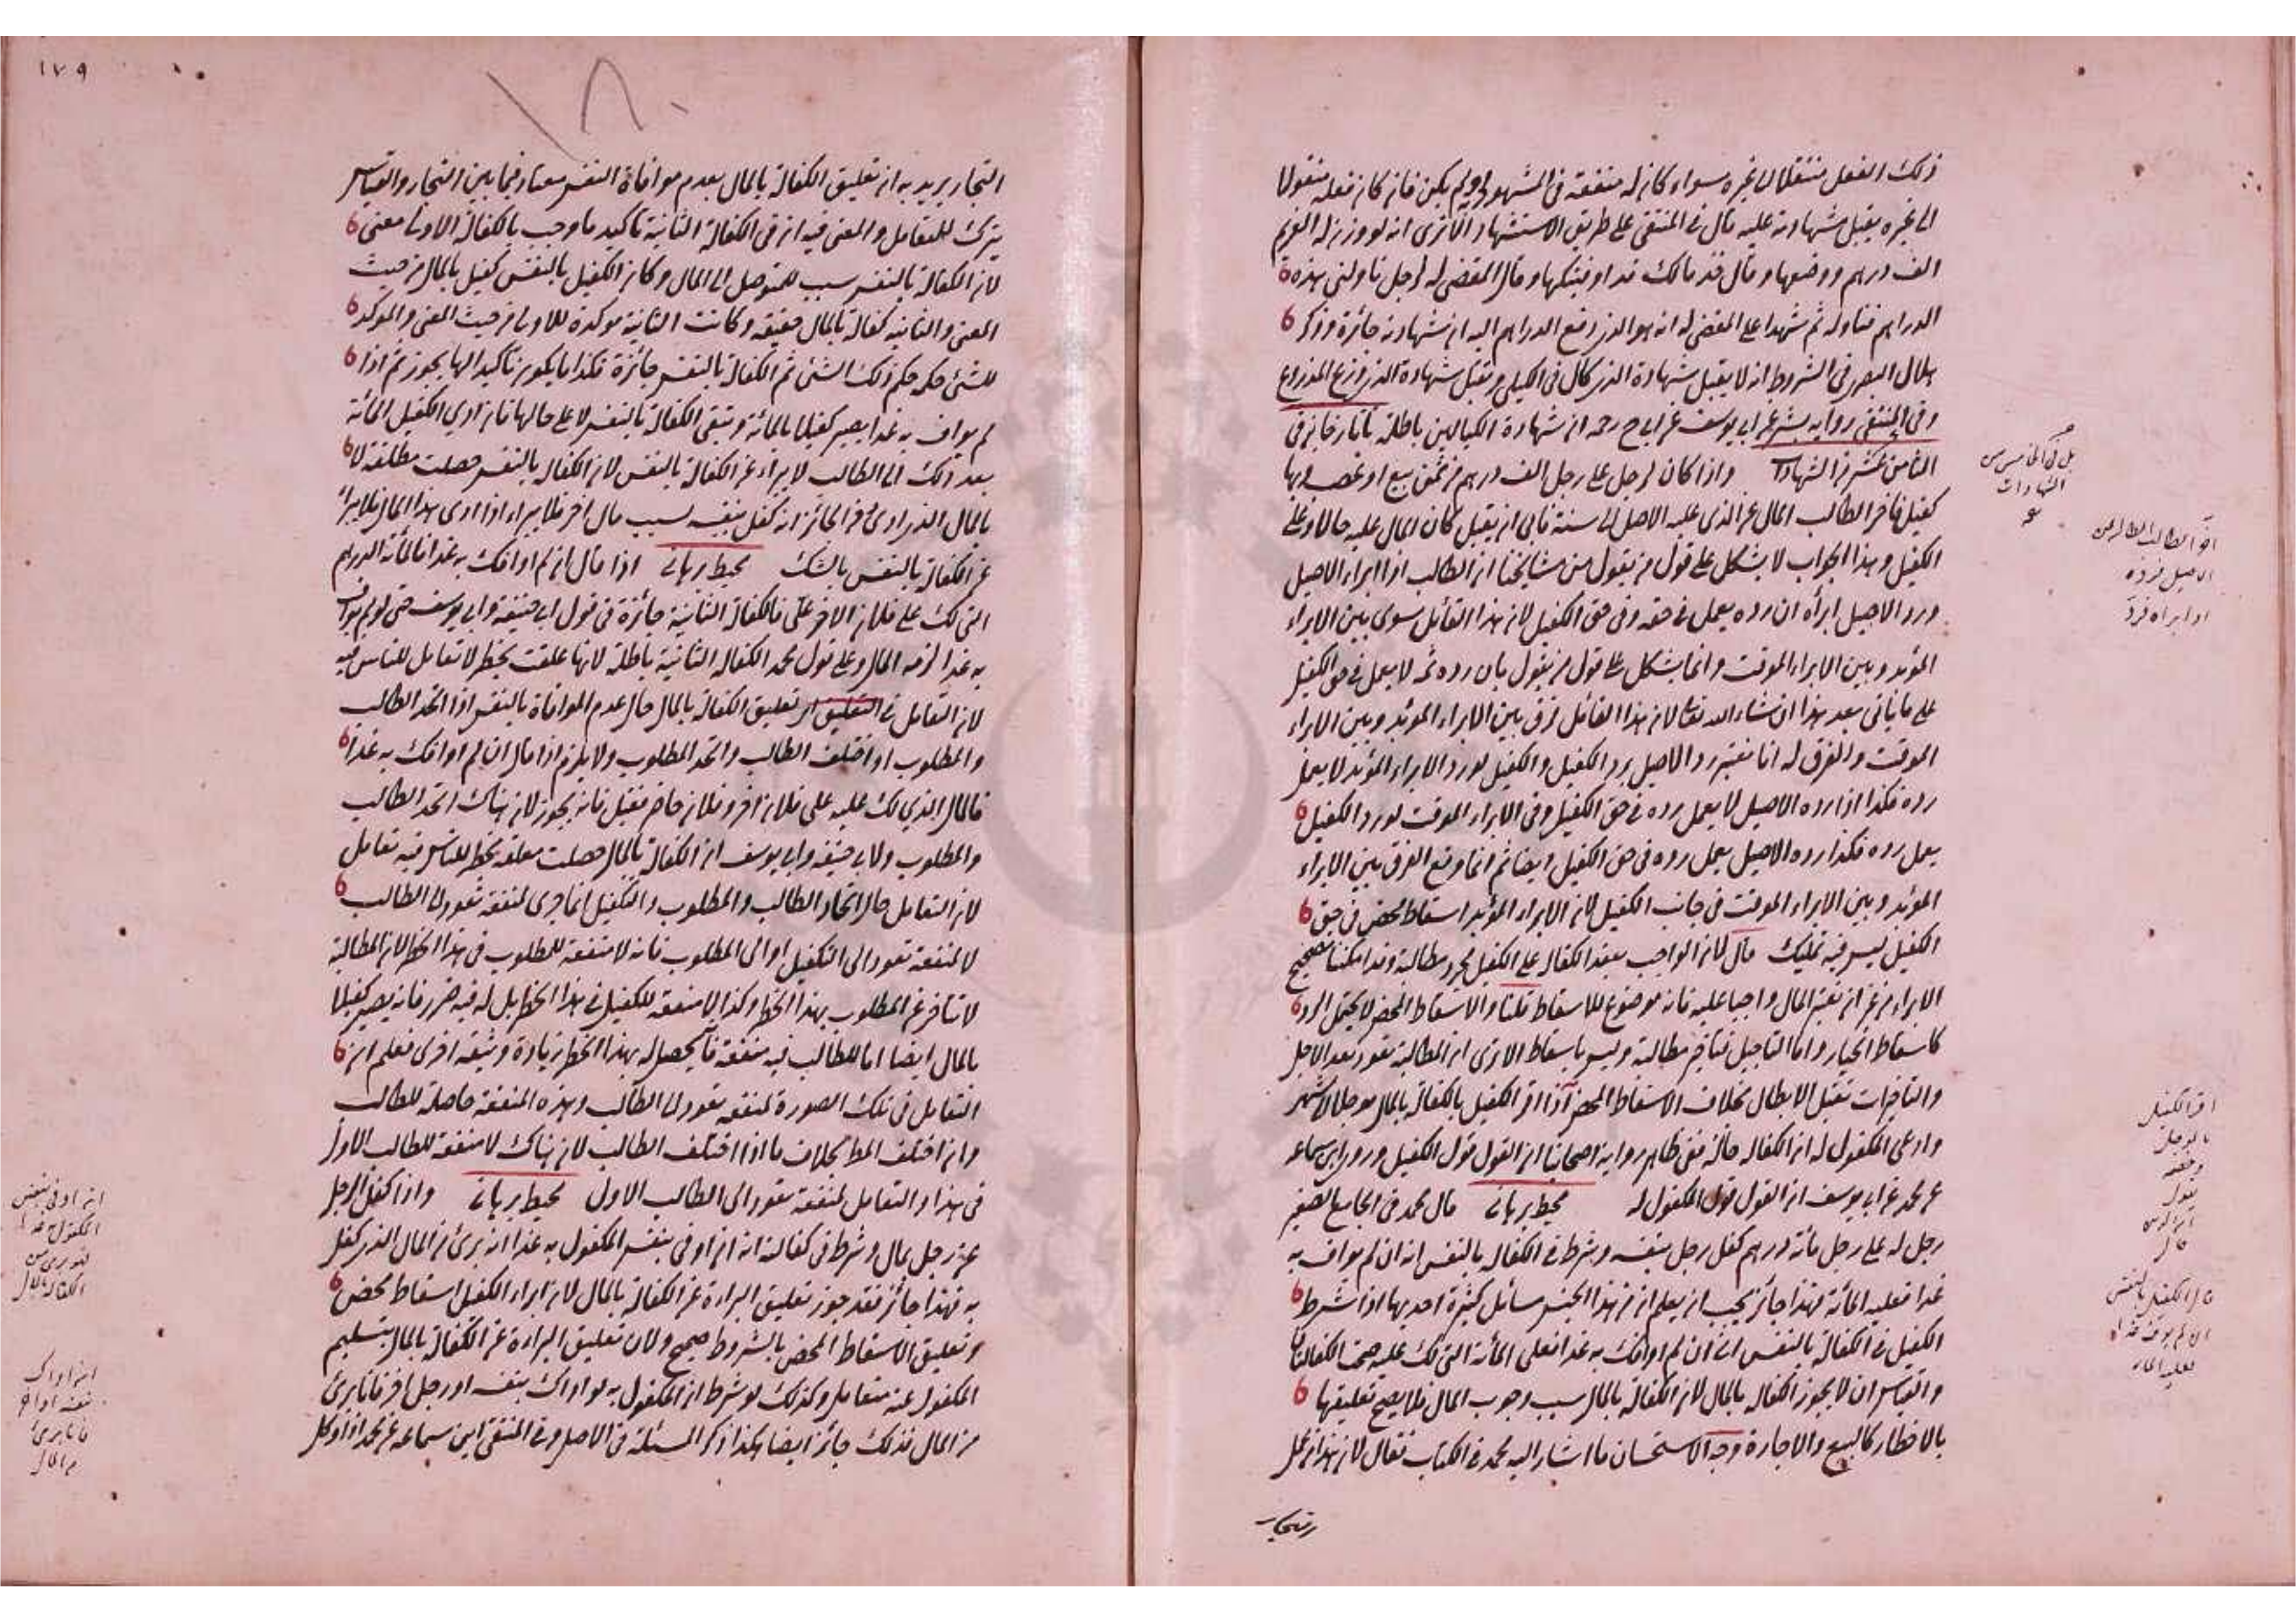 ذلك الفعل منتقلا الى غيره سواء كان له منفعة في المشهود او لم يكن فان كان فعله منقولا
الى غيره يقبل شهادته عليه قال في المنتقى على طريق الاستشهاد الا ترى انه لو وزن له الغريم
الف درهم ووضعها وقال خذ مالك قد اوفيتكها وقال المقضي له لرجل ناولني هذه
الدراهم فناوله ثم شهدا على المقضي له انه هو الذي دفع الدراهم اليه ان شهادته جائزة وذكر
هلال البصري في الشروط انه لا يقبل شهادة الذي كال في الكيلي وتقبل شهادة الذي ذرع المذروع
وفي المنتقى رواية بشر عن ابي يوسف عن ابي ح رحمه ان شهادة الكيالين باطلة تاتارخان في
الثامن عشر من الشهادات واذا كان لرجل على رجل الف درهم من ثمن بيع او غصب وبها
كفيل فاخر الطالب المال عن الذي عليه الاصل الى سنة فابى ان يقبل كان المال عليه حالا وعلى
الكفيل وهذا الجواب لا يشكل على قول من يقول من مشايخنا ان الطالب اذا ابراء الاصيل
ورد الاصيل ابرأه ان رده يعمل في حقه وفي حق الكفيل لان هذا القائل سوى بين الابراء
المؤبد وبين الابراء الموقت وانما يشكل على قول من يقول بان رده ثمه لا يعمل في حق الكفيل
على ما ياتي بعد هذا ان شاء الله تعالى لان هذا القائل فرق بين الابراء المؤبد وبين الابراء
الموقت والفرق له انا نعتبر رد الاصيل برد الكفيل والكفيل لو رد الابراء المؤبد لا يعمل
رده فكذا اذا رده الاصيل لا يعمل رده في حق الكفيل وفي الابراء الموقت لو رد الكفيل
يعمل رده فكذا رده الاصيل يعمل رده في حق الكفيل ايضا ثم انما وقع الفرق بين الابراء
المؤبد وبين الابراء الموقت في جانب الكفيل لان الابراء المؤبد اسقاط محض في حق
الكفيل ليس فيه تمليك قال لان الواجب بعقد الكفالة على الكفيل مجرد مطالبة وقد امكننا تصحيح
الابراء من غير ان نعتبر المال واجبا عليه فانه موضوع للاسقاط قلنا والاسقاط المحض لا يحتمل الرد
كاسقاط الخيار واما التاجيل فتاخير مطالبة وليس باسقاط الا ترى ان المطالبة تعود بعد الاجل
والتاخيرات تقبل الابطال بخلاف الاسقاط المحض اذا اقر الكفيل بالكفالة بالمال مؤجلا الى شهر
وادعى المكفول له ان الكفالة حالة ففي ظاهر رواية اصحابنا ان القول قول الكفيل وروى ابن سماعه
عن محمد عن ابي يوسف ان القول قول المكفول له محيط برهاني قال محمد في الجامع الصغير
رجل له على رجل مائة درهم كفل رجل بنفسه وشرط في الكفالة بالنفس انه ان لم يواف به
غدا فعليه المائة فهذا جائز يجب ان يعلم ان من هذا الجنس مسائل كثيرة احديها اذا شرط
الكفيل في الكفالة بالنفس اني ان لم اوافك به غدا فعلي المائة التي لك عليه صحت الكفالتان
والقياس ان لا يجوز الكفالة بالمال لان الكفالة بالمال سبب وجوب المال فلا يصح تعليقها
بالاخطار كالبيع والاجارة وجه الاستحسان ما اشار اليه محمد في الكتاب فقال لان هذا من عمل
بل في الخامس من
الشهادات
اخر الطالب المطالب عن
الاصيل فرده
او ابراه فرد
اقر الكفيل
قال الكفيل بالنفس
ان لم يوافه غدا
فعليه المال
١٧٩
التجار يريد به ان تعليق الكفالة بالمال بعدم موافاة النفس معتاد فيما بين التجار والقياس
يترك للتعامل والمعنى فيه ان في الكفالة الثانية تاكيد ما وجب بالكفالة الاولى معنى
لان الكفالة بالنفس سبب للتوصل الى المال وكان الكفيل بالنفس كفيل بالمال من حيث
المعنى والثانية كفالة بالمال حقيقة وكانت الثانية موكدة للاولى من حيث المعنى والموكد
للشئ حكمه حكم ذلك الشئ ثم الكفالة بالنفس جائزة فكذا ما يكون تاكيدا لها يجوز ثم اذا
لم يواف به غدا يصير كفيلا بالمائة وتبقى الكفالة بالنفس لا على حالها فان ادى الكفيل المائة
بعد ذلك الى الطالب لا يبراء عن الكفالة بالنفس لان الكفالة بالنفس حصلت مطلقة لا
بالمال الذي ادى فمن الجائز انه كفل بنفسه بسبب مال اخر فلا يبراء اذا ادى هذا المال فلا يبرأ
عن الكفالة بالنفس بالشك محيط برهاني اذا قال ان لم اوافك به غدا فالمائة الدرهم
التي لك على فلان الاخر علي فالكفالة الثانية جائزة في قول ابي حنيفة وابي يوسف حتى لو لم يواف
به غدا لزمه المال وعلى قول محمد الكفالة الثانية باطلة لانها علقت بخطر لا تعامل للناس فيه
لان التعامل في التعليق اي تعليق الكفالة بالمال حال عدم الموافاة بالنفس اذا اتحد الطالب
والمطلوب او اختلف الطالب واتحد المطلوب ولا يلزم اذا قال ان لم اوافك به غدا
فالمال الذي لك عليه على فلان اخر وفلان حاضر فقبل فانه يجوز لان هناك اتحد الطالب
والمطلوب ولابي حنيفة وابي يوسف ان الكفالة بالمال حصلت معلقة بخطر للناس فيه تعامل
لان التعامل حال اتحاد الطالب والمطلوب والكفيل انما جرى لمنفعة تعود الى الطالب
لا لمنفعة تعود الى الكفيل او الى المطلوب فانه لا منفعة للمطلوب في هذا الخطر لان المطالبة
لا تتاخر عن المطلوب بهذا الخطر وكذا لا منفعة للكفيل في هذا الخطر بل له فيه ضرر فانه يصير كفيلا
بالمال ايضا اما للطالب فيه منفعة فانه يحصل له بهذا الخطر زيادة وثيقة اخرى فعلم ان
التعامل في تلك الصورة لمنفعة تعود الى الطالب وهذه المنفعة حاصلة للطالب
وان اختلف المط بخلاف ما اذا اختلف الطالب لان هناك لا منفعة للطالب الاول
في هذا والتعامل لمنفعة تعود الى الطالب الاول محيط برهاني واذا كفل الرجل
عن رجل بمال وشرط في كفالته انه ان اوفى بنفس المكفول به غدا انه برئ من المال الذي كفل
به فهذا جائز فقد جوز تعليق البراءة عن الكفالة بالمال لان ابراء الكفيل اسقاط محض
وتعليق الاسقاط المحض بالشروط صحيح ولان تعليق البراءة عن الكفالة بالمال بتسليم
المكفول عنه متعامل وكذلك لو شرط ان المكفول به لو اوافاك بنفسه او رجل اخر فانا برئ
من المال فذلك جائز ايضا هكذا ذكر المسئلة في الاصل وفي المنتقى ابن سماعه عن محمد اذا وكل